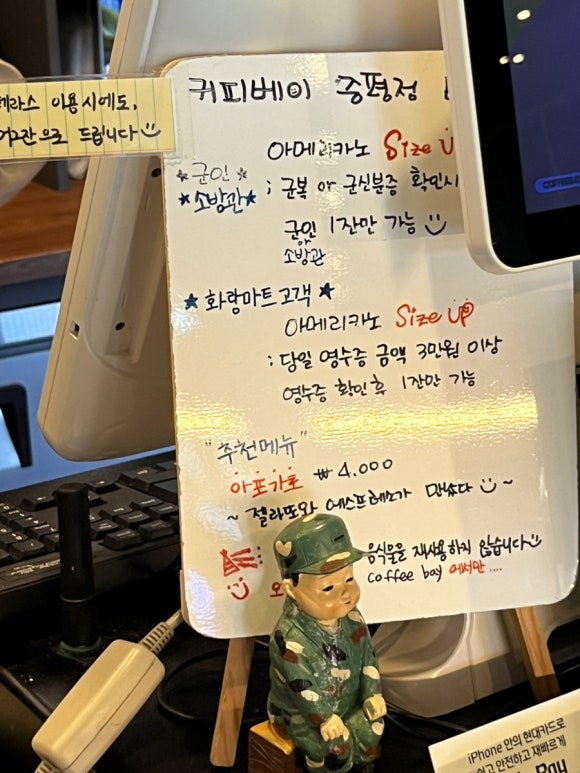 테라스 이용시에도,
드립니다
커피베이 증평점
아메리카노 Size U
★군인★
★소방관★
; 군복 or 군신분증 확인시
군인 1잔만 가능
or
소방관
★ 화랑마트고객 ★
아메리카노 Size UP
; 당일 영수증 금액 3만원 이상
영수증 확인 후 1잔만 가능
"추천메뉴"
아포가토 ₩4.000
~ 젤라또와 에스프레소가 만났다 ~
음식물을 재사용하지 않습니다
coffee bay 에서만 ....
iPhone 안의 현대카드로
쉽고 안전하고 재빠르게
Pay